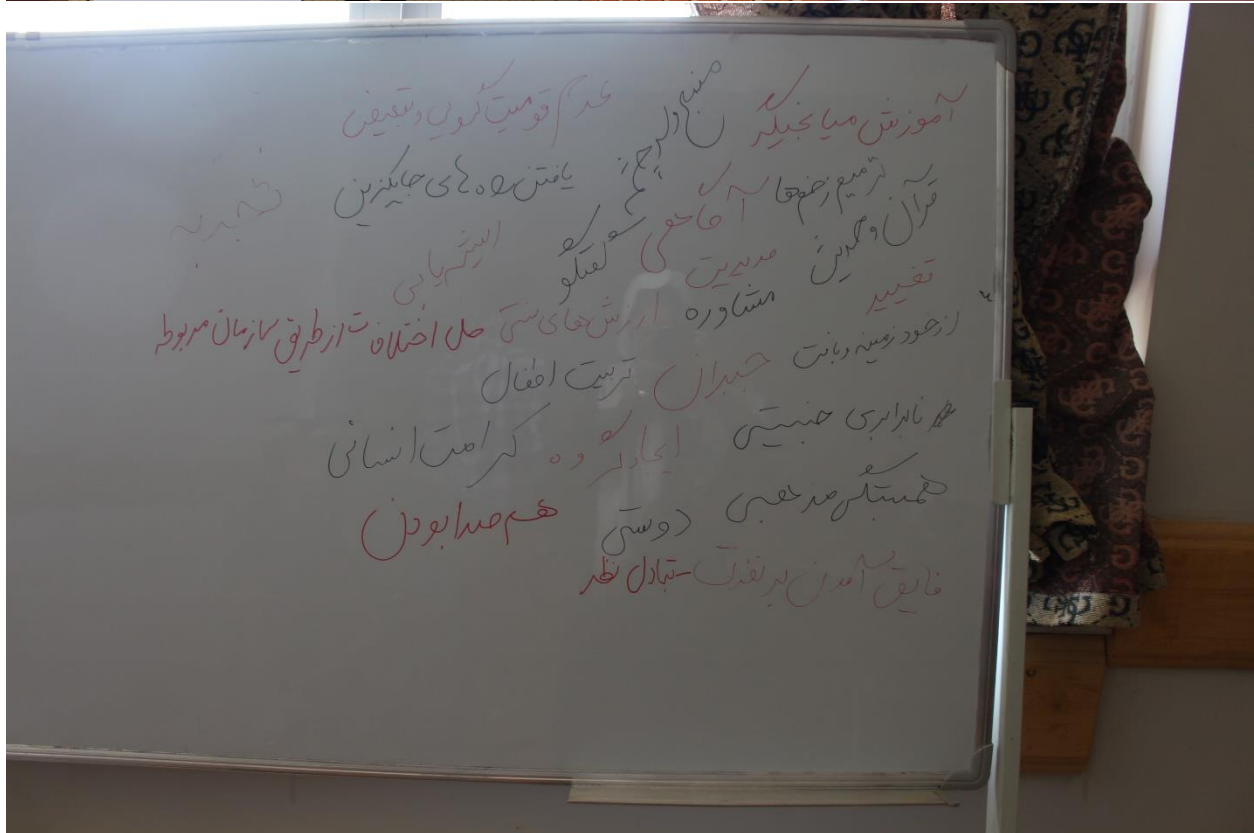 آموزش میانجیگر عدم قومیت گویی و تبعیض
ترمیم زخم‌ها یافتن راه های جایگزین تجربه
قرآن و آگاهی گفتگو
تغییر مدیریت مشاوره ارزش‌های سنتی حل اختلافات از طریق سازمان مربوطه
از خود زمینه و بافت جبران تربیت اطفال
نابرابری جنسیتی ایجاد گروه کرامت انسانی
همبستگی مذهبی دوستی هم صدا بودن
فایق آمدن بر نفرت - تبادل نظر